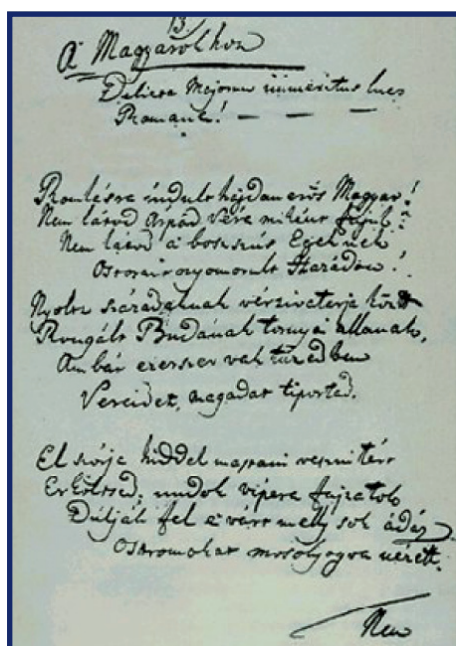 13
A' Magyarokhoz
Delicta Majorum immeritus lues
Romane! — — —
Romlásra indult hajdan erős Magyar!
Nem látod Árpád vére miként fajul?
Nem látod a' bosszús Egeknek
Ostorait nyomorult Hazádon?
Nyolcz századoknak vérzivatarja közt
Rongált Budának tornyai állanak,
Ámbár ezerszer vak tűzedben
Véreidet, magadat tiportad.
El szórja hiddel mastani veszni tért
Erkölcsöd; undok vipera fajzatok
Dúlják fel a' várt melly sok ádáz
Ostromokat mosolyogva nézett.
Nem